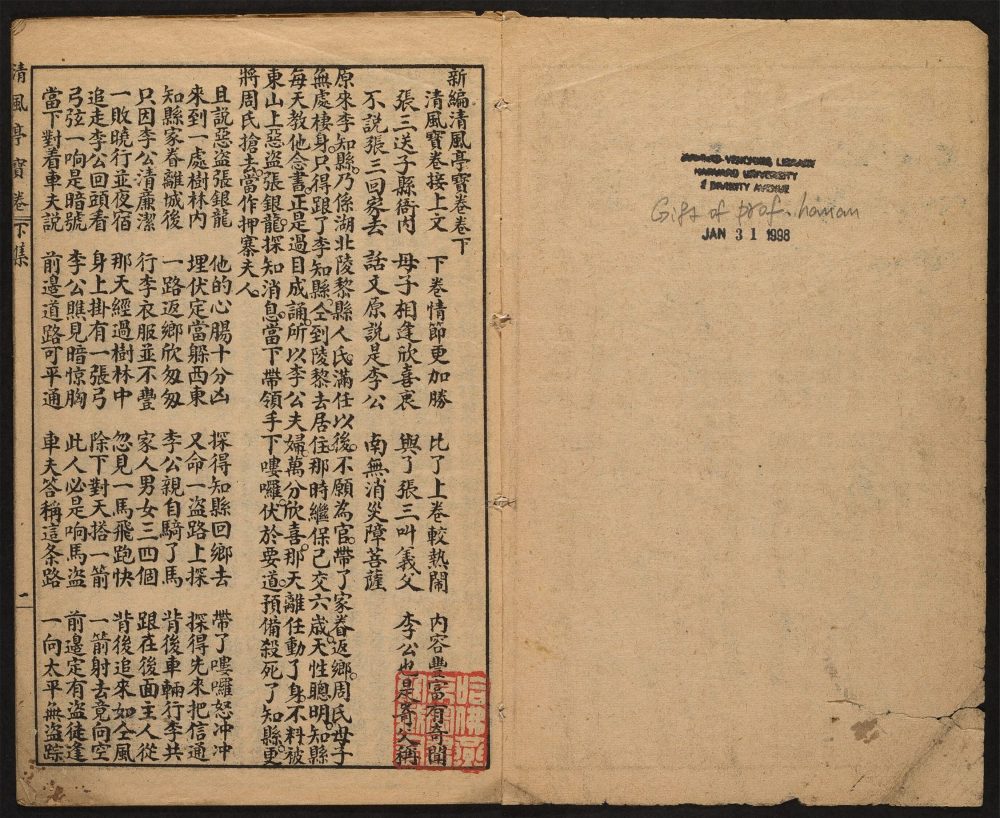 HARVARD-YENCHING LIBRARY
HARVARD UNIVERSITY
2 DIVINITY AVENUE
Gift of prof. hanan
JAN 31 1998
新編清風亭寶卷卷下
清風寶卷接上文 下卷情節更加勝 比了上卷較熱鬧 內容豐富有奇聞
張三送子縣衙內 母子相逢欣喜衷 與了張三叫義父 李公也是寄父稱
不說張三回家去 話文原說是李公 南無消災障菩薩
原來李知縣。乃係湖北陵黎縣人民。滿任以後。不願為官。帶了家眷返鄉。周氏母子
無處棲身。只得跟了李知縣。仝到陵黎去居住。那時繼保已交六歲天性聰明。知縣
每天教他念書正是過目成誦。所以李公夫婦萬分欣喜。那天離任動了身。不料被
東山上惡盜張銀龍。探知消息。當下帶領手下嘍囉。伏於要道。預備殺死了知縣更
將周氏搶去。當作押寨夫人。
且說惡盜張銀龍 他的心腸十分凶 探得知縣回鄉去 帶了嘍囉怒冲冲
來到一處樹林內 埋伏定當躲西東 又命一盜路上探 探得先來把信通
知縣家眷離城後 一路返鄉欣匆匆 李公親自騎了馬 背後車輛行李共
只因李公清廉潔 行李衣服並不豐 家人男女三四個 跟在後面主人從
一敗曉行並夜宿 那天經過樹林中 忽見一馬飛跑快 背後追來如仝風
追走李公回頭看 身上掛有一張弓 除下對天搭一箭 一箭射去竟向空
弓弦一响是暗號 李公瞧見暗惊胸 此人必是响馬盜 前邊定有盜徒逢
當下對着車夫說 前邊道路可平通 車夫答稱這条路 一向太平無盜踪
清風亭寶卷 下集 一